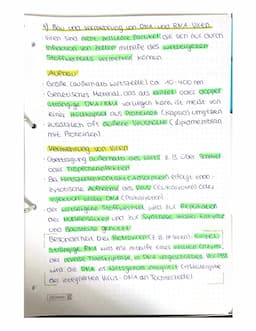 4) Bau und Vermehrung von DNA- und RNA-Viren
Viren sind nicht zelluläre Partikel, die sich nur durch
Infektion von Zellen mithilfe des wirtseigenen
Stoffwechsels vermehren können.
Aufbau
- Größe (außerhalb Wirtszelle) ca. 10-400 nm
- Genetisches Material, das als einzel- oder doppel-
strängige DNA/RNA vorliegen kann, ist meist von
einer Hüllkapsel aus Proteinen (Kapsid) umgeben
- Zusätzlich oft äußere Virushülle (Lipidmembran
mit Proteinen)
Vermehrung von Viren
- Übertragung außerhalb des Wirts z.B. über
Tröpfcheninfektion
- Bei erfolgt endo-
zytotische Aufnahme des Virus (Eukaryoten) oder
Injektion seiner DNA (Prokaryoten)
- der wirtseigene Stoffwechsel wird zur Replikation
des und zur Synthese
genutzt
- Besonderheit bei Retroviren (z.B. ): einzel-
strängige RNA wird mit Hilfe eines viralen Enzyms,
der reverse Transkriptase in DNA umgeschrieben
wird die DNA ins Wirtsgenom integriert
der integrierten Virus-DNA als Tochterzelle)